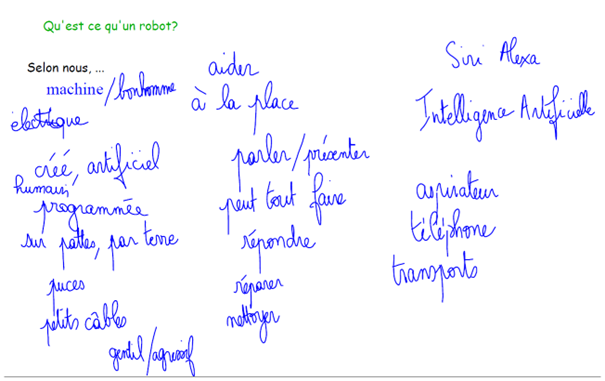 Qu'est ce qu'un robot?
Selon nous, ...
machine/bonhomme
électrique
créé, artificiel
humain,
programmée
sur pattes, par terre
puces
petits câbles
gentil/agressif
aider
à la place
parler/présenter
peut tout faire
répondre
réparer
nettoyer
Siri Alexa
Intelligence Artificielle
aspirateur
téléphone
transports